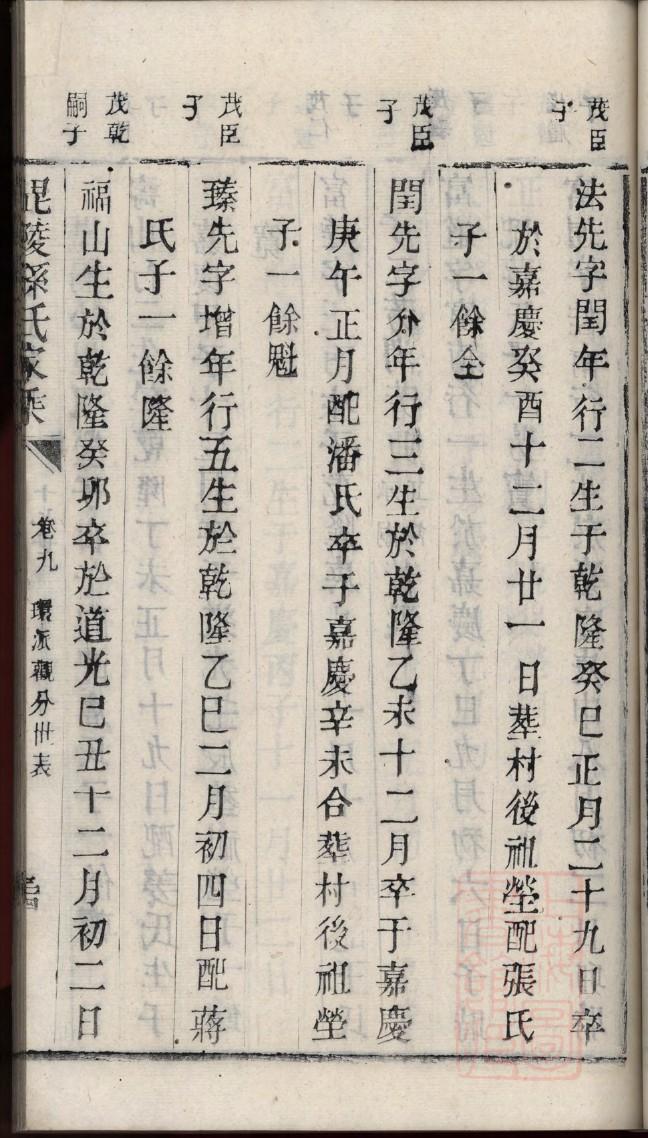 茂臣
子
法先字閏年行二生于乾隆癸巳正月二十九日卒
於嘉慶癸酉十二月廿一日葬村後祖塋配張氏
子一餘全
茂臣
子
閏先字分年行三生於乾隆乙未十二月卒于嘉慶
庚午正月配潘氏卒于嘉慶辛未合葬村後祖塋
子一餘魁
茂臣
子
瑧先字增年行五生於乾隆乙巳二月初四日配蔣
氏子一餘隆
茂乾
嗣子
福山生於乾隆癸卯卒於道光己丑十二月初二日
毘陵孫氏家乘
卷九
環派觀分世表